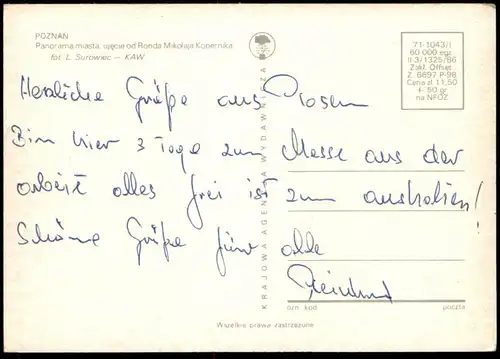 POZNAŃ
Panorama miasta, ujęcie od Ronda Mikołaja Kopernika
fot. L. Surowiec — KAW
71-1043/I
60 000 egz.
II 3/1325/86
Zakł. Offset.
Z. 6697 P-98
Cena zł 11,50
+ 50 gr
na NFOZ
Herzliche Grüße aus Posen
Bin hier 3 Tage zur Messe aus der
arbeit alles frei ist zum aushalten!
Schöne Grüße für alle
KRAJOWA AGENCJA WYDAWNICZA
ozn. kod poczta
Wszelkie prawa zastrzeżone